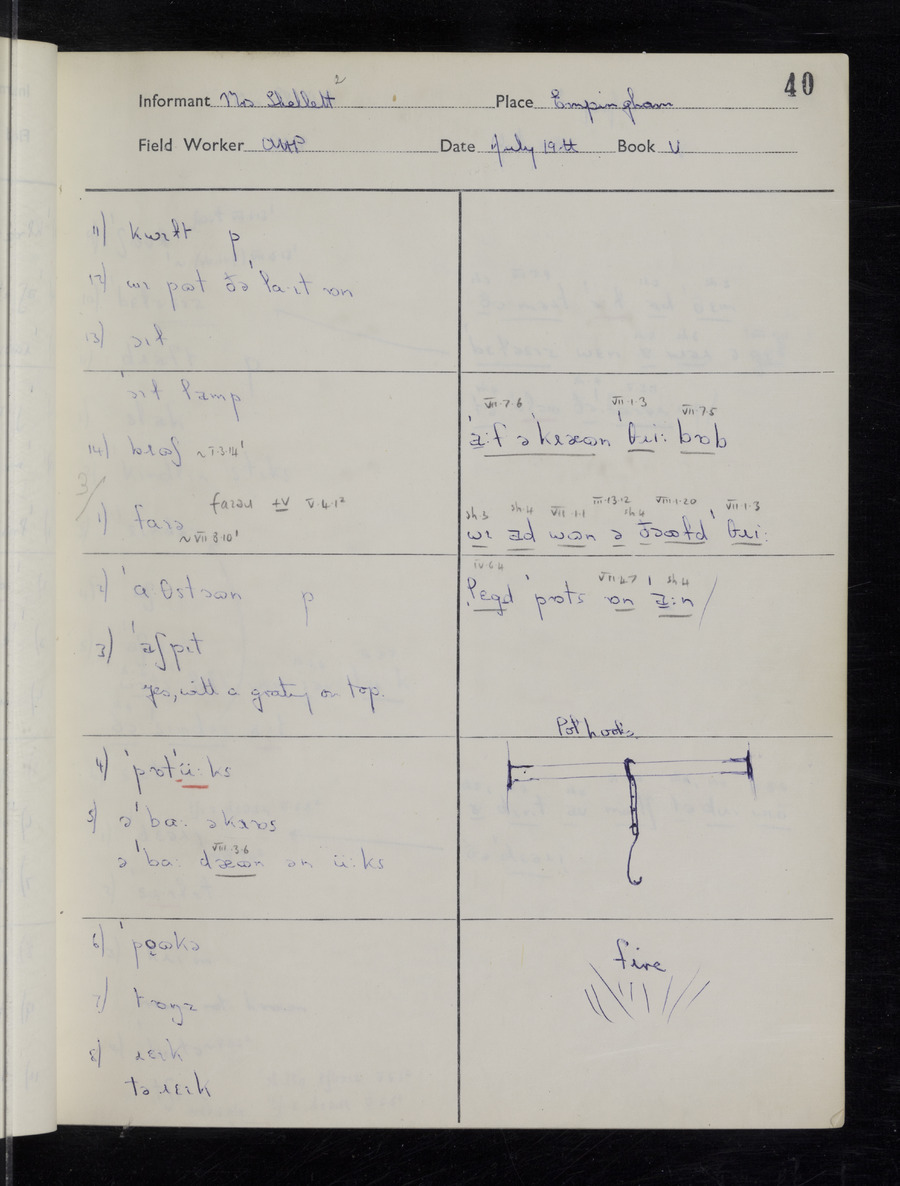 40
Informant Mrs Shellett 2 Place Empingham
Field Worker Date July 19th Book V
11) kwɪlt p
12) wɪ pʊt ðə ˈlaɪt ɒn
13) ɔɪl
ˈɔɪl lamp
14) ~V.3.14¹
3/
1) faɪə faɪəɹ +V V.4.1²
~VII.8.10¹
2) ˈa:θstɔʊn p
3) ˈaʃpɪt
yes, with a grating on top.
4) ˈpɒtˈü:ks
5) ə ˈba: əkɹɒs
ə ˈba: dæʊn ən ü:ks
VIII.3.6
6) ˈpǫʊkə
7) tɒŋz
8) ɹɛɪk
tə ɹɛɪk
VII.7.6 VII.1.3 VII.7.5
ˈa:f əˈkɹæʊn ˈθɹi: bɒb
sh.3 sh.4 VII.1.1 III.13.12 sh.4 VIII.1.20 VII.1.3
wɪ ad wɒn ə ðəʊld ˈθɹi:
IV.6.4 VII.4.7 sh.4
lɛgd ˈpɒts ɒn a:n /
Pot hooks
fire